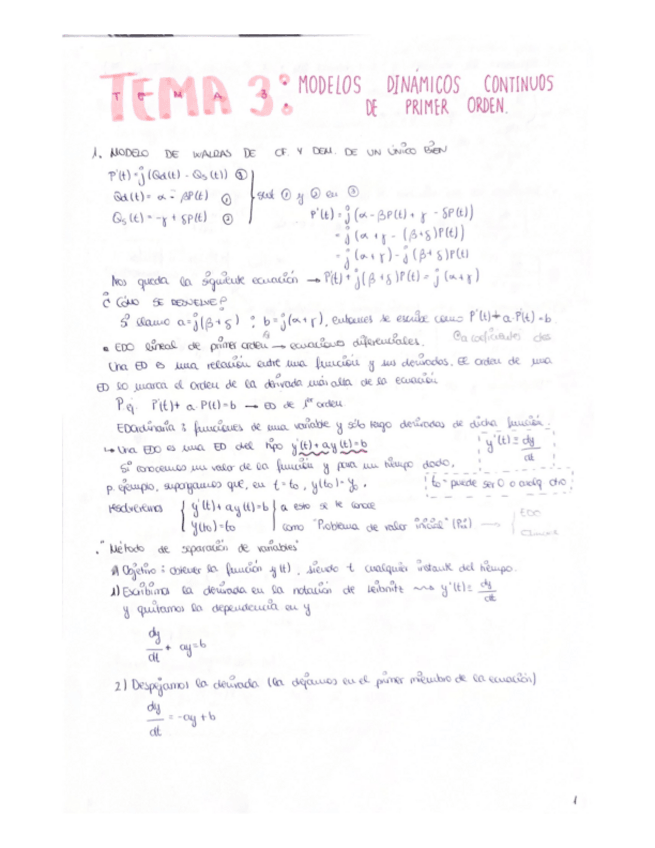 TEMA 3: MODELOS DINÁMICOS CONTINUOS
DE PRIMER ORDEN.
1. MODELO DE WALRAS DE OF. Y DEM. DE UN ÚNICO BIEN
P'(t) = j (Qd(t) - Qs(t)) ③
Qd(t) = α - βP(t) ①
Qs(t) = -γ + δP(t) ②
sust ① y ② en ③
P'(t) = j (α - βP(t) + γ - δP(t))
= j (α + γ - (β+δ)P(t))
= j (α + γ) - j (β + δ)P(t)
Nos queda la siguiente ecuación → P'(t) + j (β + δ)P(t) = j (α+γ)
¿ CÓMO SE RESUELVE?
Si llamo a = j(β+δ) ; b = j(α+γ), entonces se escribe como P'(t) + a·P(t) = b.
• EDO lineal de primer orden → ecuaciones diferenciales.
Una ED es una relación entre una función y sus derivadas. El orden de una
ED lo marca el orden de la derivada más alta de la ecuación
P.ej. P'(t) + a·P(t) = b → ED de 1er orden.
EDOrdinaria : funciones de una variable y sólo tengo derivadas de dicha función.
↳ Una EDO es una ED del tipo y'(t) + ay(t) = b
y'(t) = dy/dt
Si conocemos un valor de la función y para un tiempo dado,
p. ejemplo, supongamos que, en t = to, y(to) = yo,
to = puede ser 0 o cualq. otro
resolveremos { y'(t) + ay(t) = b
y(to) = to } a esto se le conoce
como "Problema de valor inicial" (PVI) → { EDO
." Método de separación de variables"
Objetivo : obtener la función y(t), siendo t cualquier instante del tiempo.
1) Escribimos la derivada en la notación de Leibnitz ⇝ y'(t) = dy/dt
y quitamos la dependencia en y
dy/dt + ay = b
2) Despejamos la derivada (la dejamos en el primer miembro de la ecuación)
dy/dt = -ay + b
1